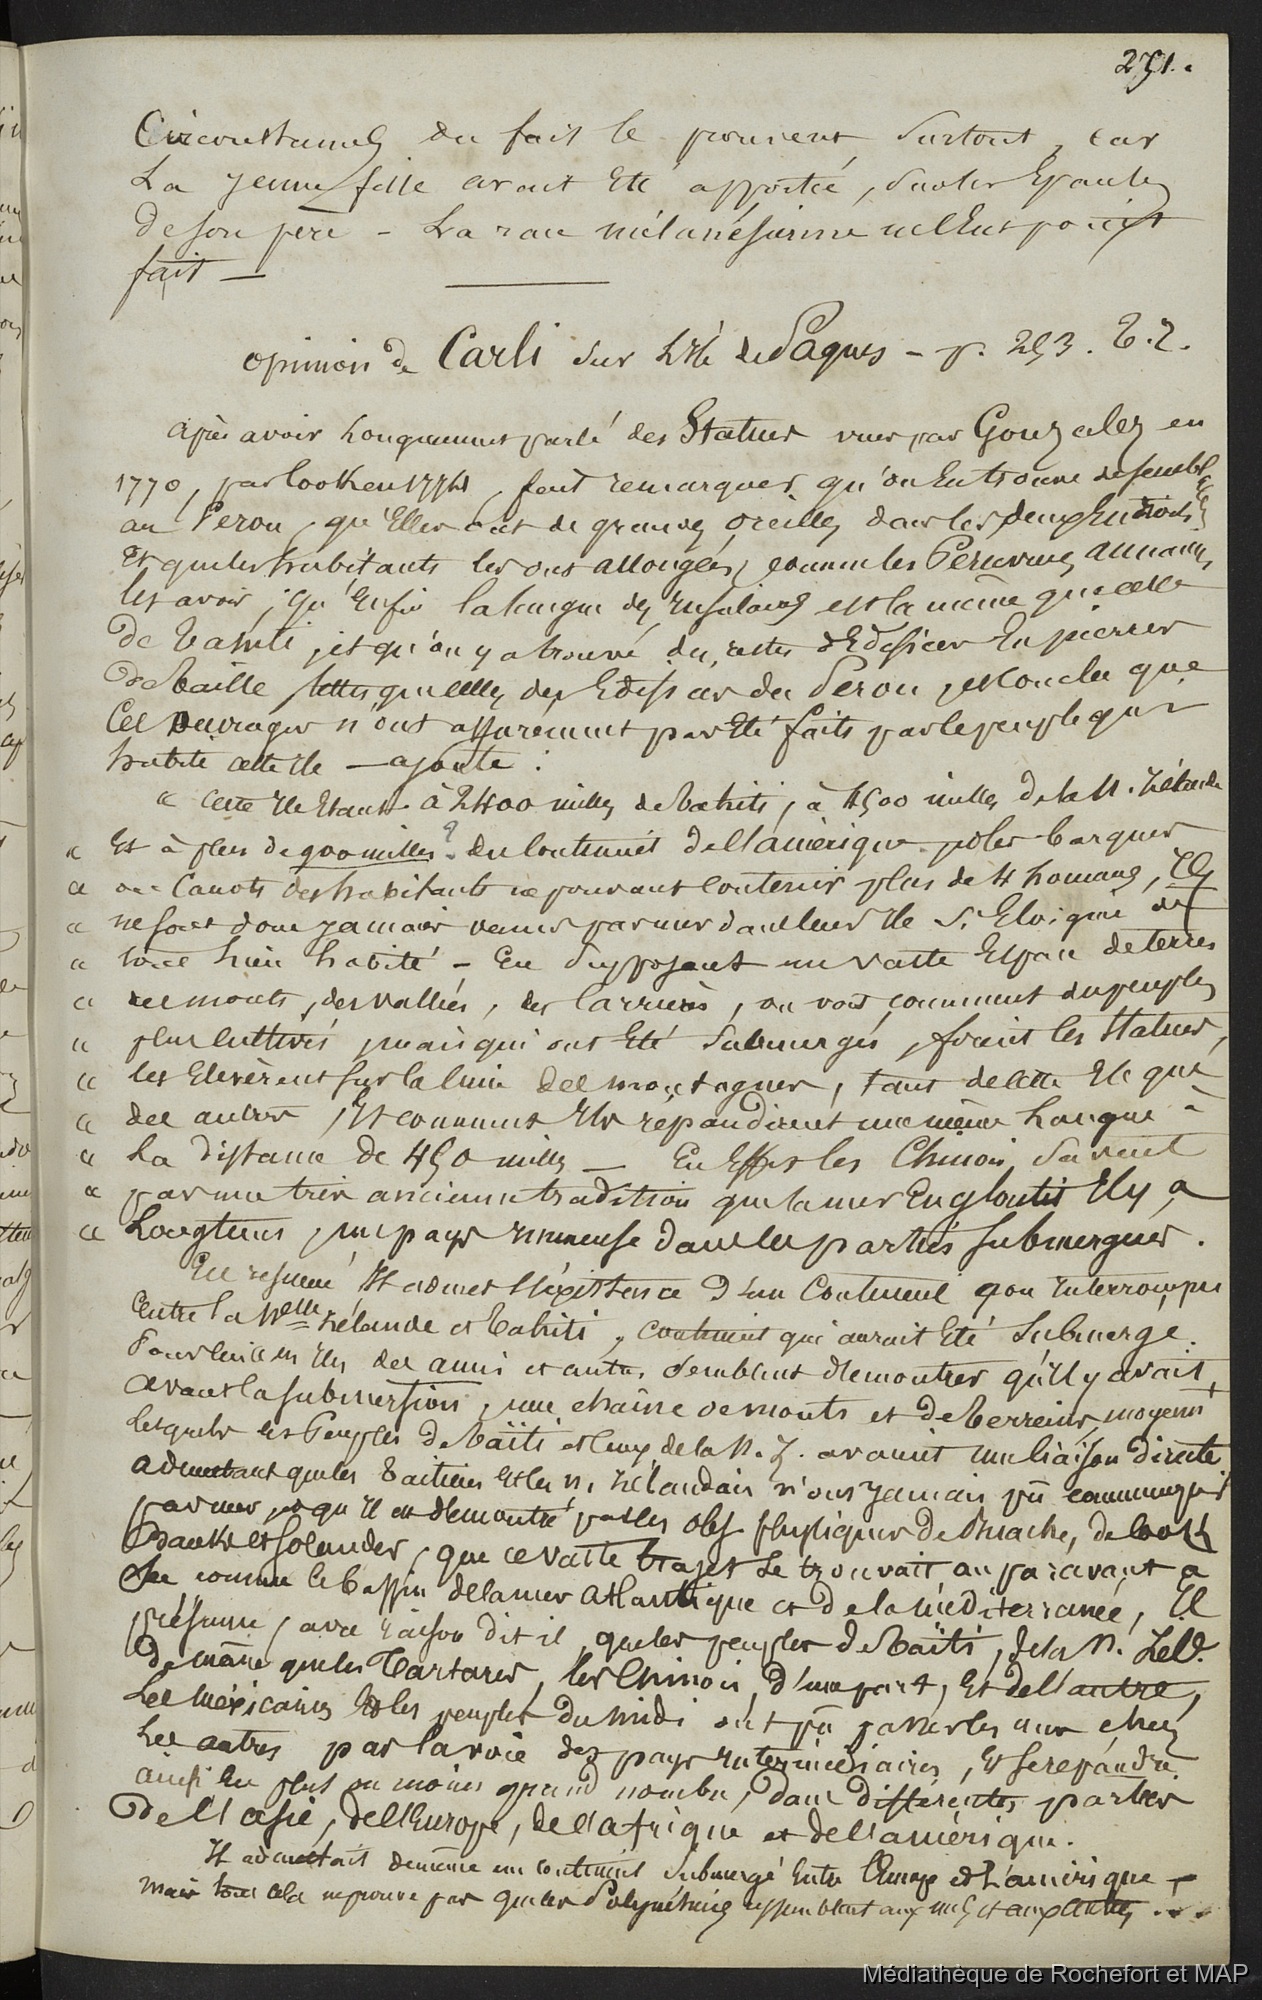 251.
Circonstances du fait le prouvent surtout, car
La jeune fille avait été apportée, sur les Epaules
de son père - La race mélanésienne ne l'eut point
fait —
opinion de Carli sur L'Ile de Pâques - p. 253. T. 2.
après avoir longuement parlé des Statues vues par Gonzalez en
1770, par Cook en 1774, fait remarquer qu'on en trouve de semblables
au Perou, qu'Elles ont de grandes oreilles dans les deux Endroits
Et que les habitants les ont allongées, comme les Peruviens
les avoir, qu'Enfin la langue des Insulaires est la même que celle
de Tahiti, et qu'on y a trouvé des restes d'Edifices En pierres
de Taille telles que celles des Edifices du Perou, et conclu que
Ces ouvrages n'ont assurement pas Eté faits par le peuple qui
habite cette Ile — ajoute :
" Cette Ile Etant à 2400 milles de Tahiti, à 4500 milles de la N. Zélande
" Et à plus de 900 milles du Continent de l'amérique. & les barques
" ou Canots des habitants ne pouvant contenir plus de 4 hommes, Ils
" ne sont donc jamais venus par mer dans leur Ile si Eloignée de
" tout lieu habité - En supposant un vaste Espace de terres
" des monts, des vallées, des Carrières, on voit comment des peuples
" plus cultivés, mais qui ont Eté submergés, firent les Statues,
" les Elevèrent sur la cime des montagnes, tant de cette Ile que
" des autres, Et comment Ils répandirent une même Langue à
" La distance de 450 milles — En Effet les Chinois savent
" par une très ancienne tradition que la mer Engloutit Il y a
" Longtems, un pays immense dans les parties submergées.
En résumé Il admet l'Existence d'un Continent non Interrompu
Entre la Nelle Zélande et Tahiti, continent qui aurait Eté submergé.
Pour lui les Iles des amis et autres semblent démontrer qu'il y avait,
avant la submersion, une chaîne de monts et de terreins, moyennt
lesquels les Peuples de Taïti et ceux de la N. Z. avaient une liaison directe
admettant que les Taitiens et les N. Zélandais n'ont jamais pu communiquer
par mer, et qu'il est démontré par les obs. physiques de Buache, de Cook
Banks et Solander, que ce vaste trajet se trouvait au paravant à
Sec comme le bassin de la mer Atlantique et de la méditerranée, Il
présume, avec raison dit il, que les peuples de Taïti, de la N. Zeld.
De même que les Tartares, les Chinois, d'une part, Et de l'autre,
Les Méxicains Et les peuples du midi ont pu passer les uns chez
Les autres par la voie des pays Intermédiaires, Et se répandre
ainsi En plus ou moins grand nombre, dans différentes parties
De l'asie, de l'Europe, de l'afrique et de l'amérique.
Il admettait de même un continent submergé Entre l'Europe et L'amérique —
mais tout cela ne prouve pas que les Polynésiens ressemblent aux uns et aux autres ...
Médiathèque de Rochefort et MAP